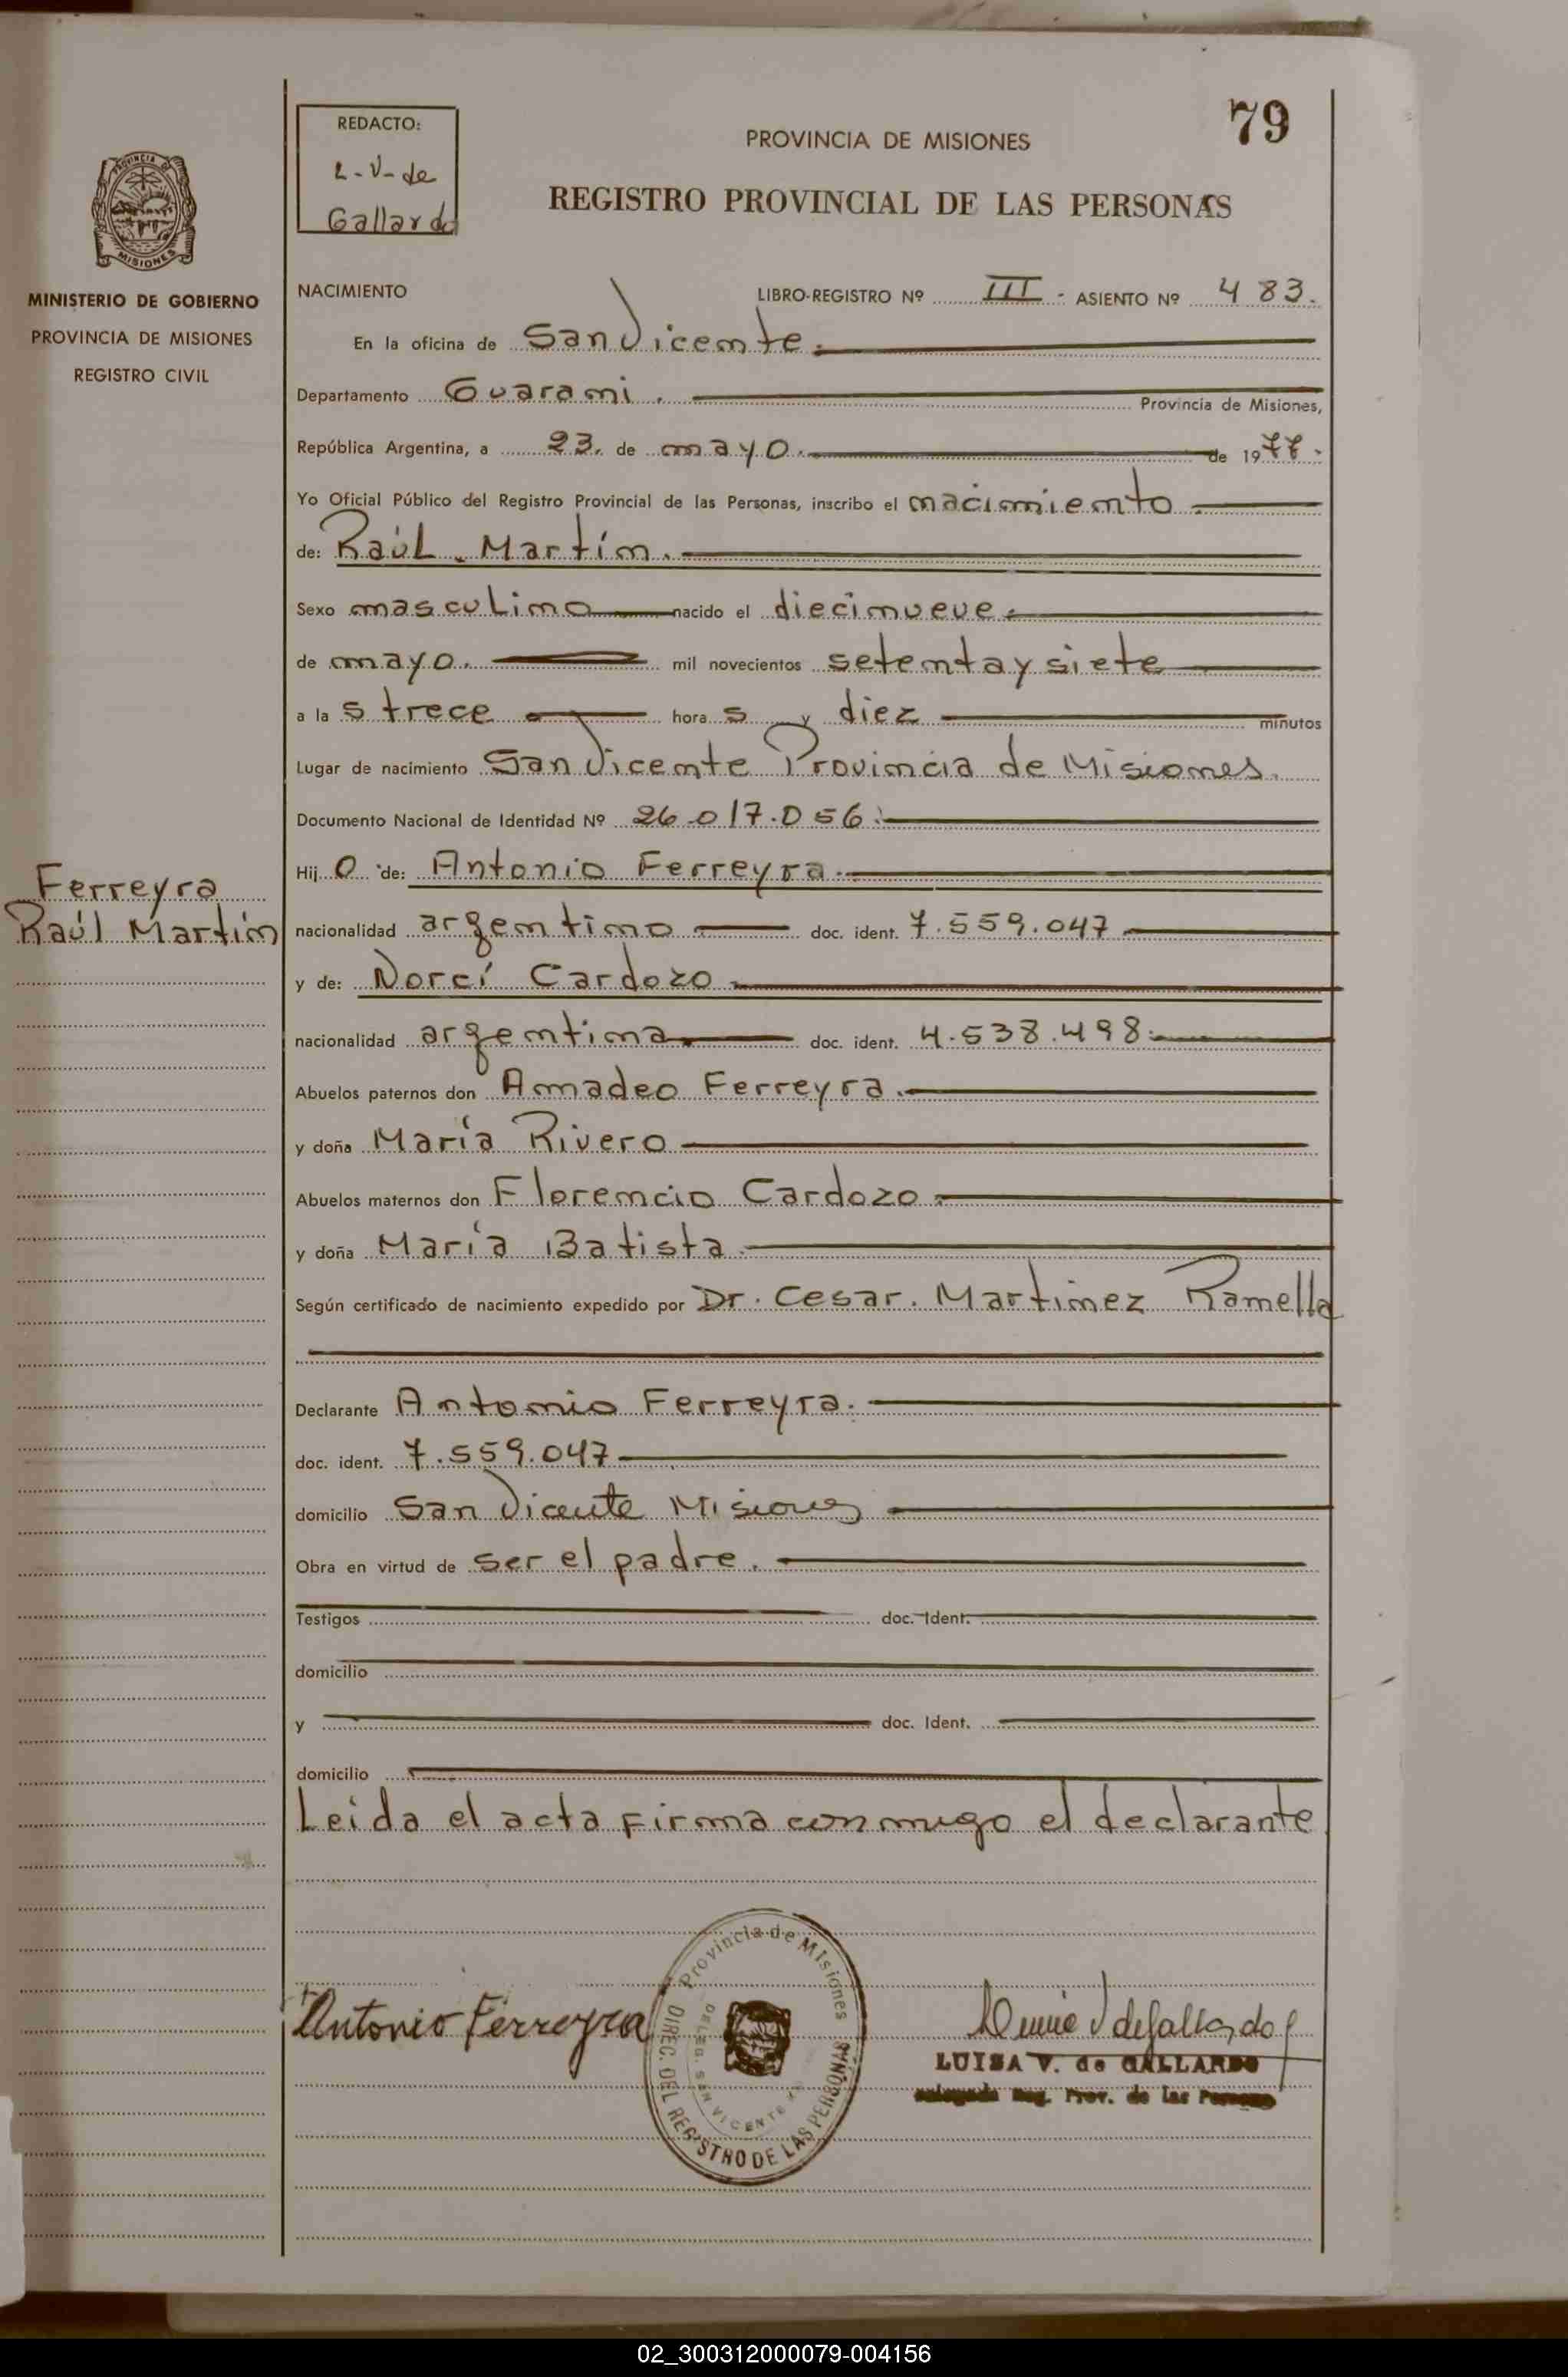 79
REDACTO:
L-V-de
Gallardo
PROVINCIA DE MISIONES
REGISTRO PROVINCIAL DE LAS PERSONAS
PROVINCIA DE
MISIONES
MINISTERIO DE GOBIERNO
PROVINCIA DE MISIONES
REGISTRO CIVIL
NACIMIENTO LIBRO-REGISTRO Nº III - ASIENTO Nº 483.
En la oficina de San Vicente.
Departamento Guarani. Provincia de Misiones,
República Argentina, a 23. de mayo. de 1977.
Yo Oficial Público del Registro Provincial de las Personas, inscribo el nacimiento
de: Raúl Martín.
Sexo masculino nacido el diecinueve.
de mayo. mil novecientos setenta y siete
a la s trece hora s y diez minutos
Lugar de nacimiento San Vicente Provincia de Misiones.
Documento Nacional de Identidad Nº 26.017.056.
Hij o de: Antonio Ferreyra.
Ferreyra
Raúl Martín
nacionalidad argentino doc. ident. 7.559.047
y de: Norcí Cardozo
nacionalidad argentina doc. ident. 4.538.498.
Abuelos paternos don Amadeo Ferreyra.
y doña María Rivero
Abuelos maternos don Florencio Cardozo
y doña María Batista
Según certificado de nacimiento expedido por Dr. Cesar. Martinez Ramella
Declarante Antonio Ferreyra.
doc. ident. 7.559.047
domicilio San Vicente Misiones
Obra en virtud de ser el padre.
Testigos doc. Ident.
domicilio
y doc. Ident.
domicilio
Leida el acta firma conmigo el declarante
Antonio Ferreyra
Provincia de Misiones
DIREC. DEL REGISTRO DE LAS PERSONAS
DELEG. SAN VICENTE
V de Gallardo
LUISA V. de GALLARDO
Delegada Reg. Prov. de las Personas
02_300312000079-004156